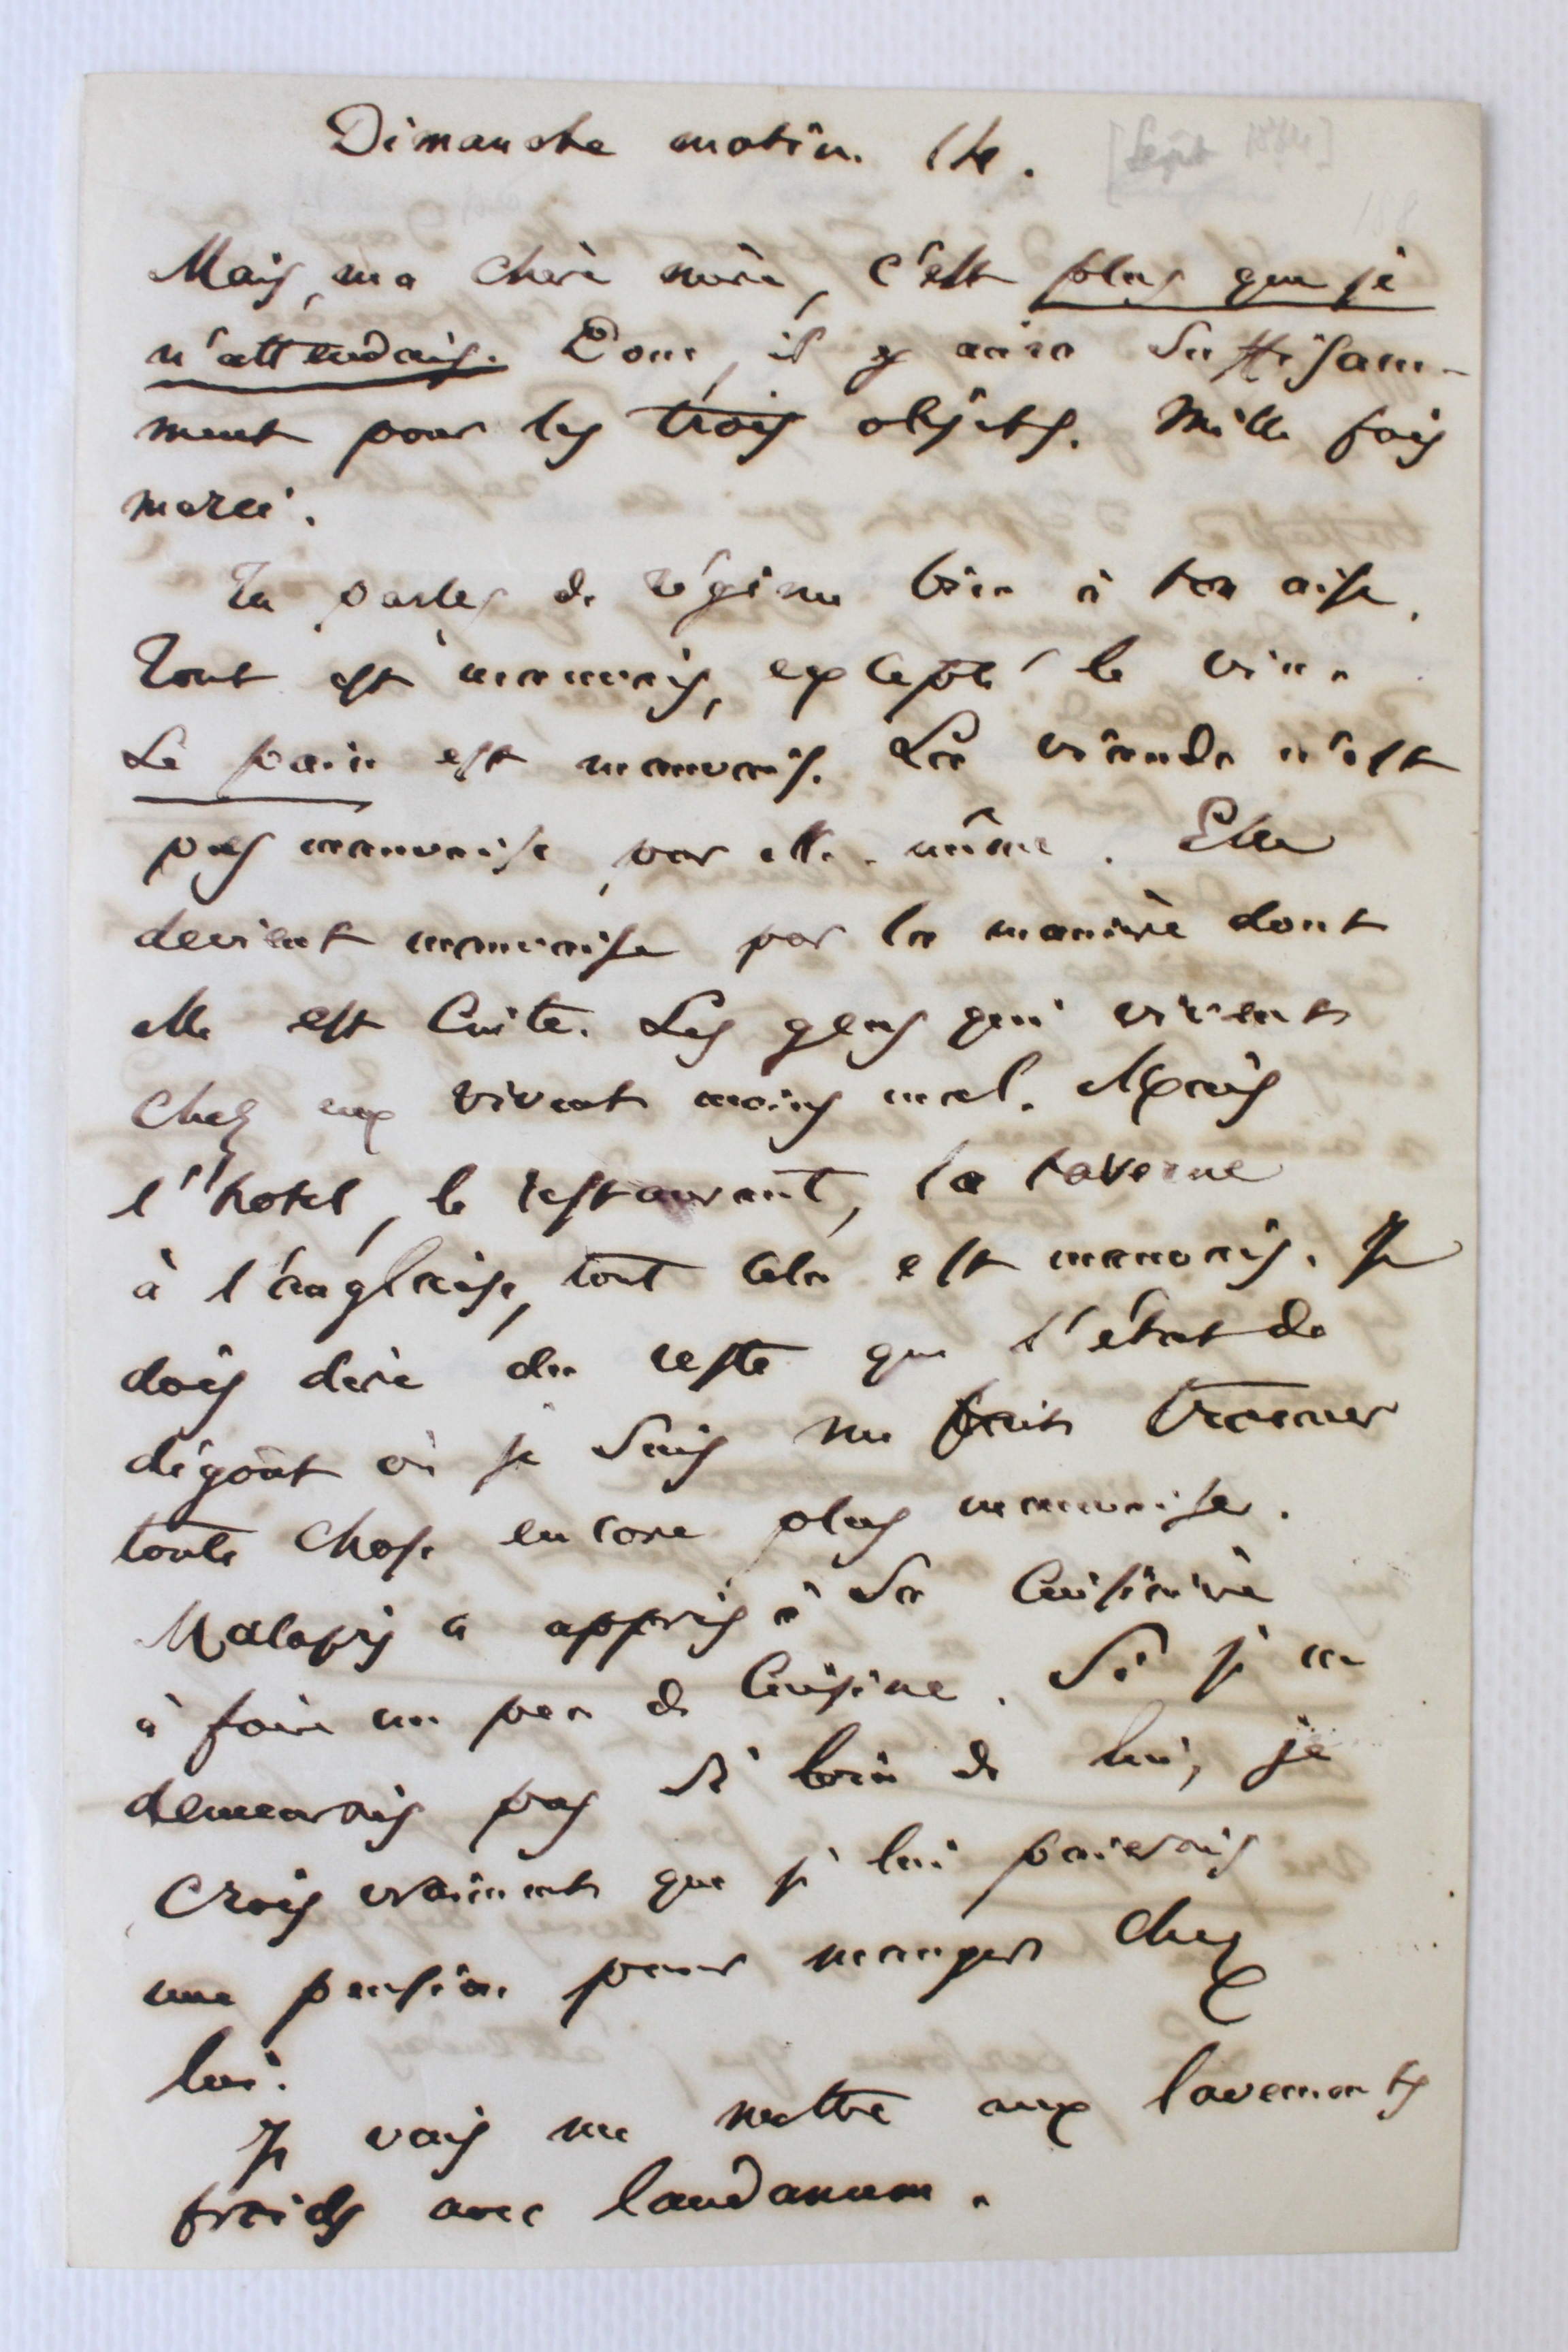 Dimanche matin. 14. [Août 1864]
Mais, ma chère mère, c'est plus que je
n'attendais. Donc, il y aura suffisam-
ment pour les trois objets. Mille fois
merci.
Tu parles de régime bien à ton aise.
Tout est mauvais, excepté le vin.
Le pain est mauvais. La viande n'est
pas mauvaise par elle-même. Elle
devient mauvaise par la manière dont
elle est cuite. Les gens qui vivent
chez eux vivent moins mal. Mais
l'hotel, le restaurant, la taverne
à l'anglaise, tout cela est mauvais. Je
dois dire du reste que l'état de
dégoût où je suis me fait trouver
toute chose encore plus mauvaise.
Malassis a appris à sa cuisinière
à faire un peu de cuisine. Si je ne
demeurais pas si loin de lui, je
crois vraiment que je lui paierais
une pension pour manger chez
lui.
Je vais me mettre aux lavements
froids avec laudanum.